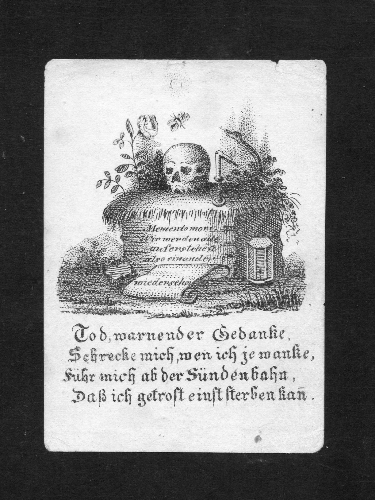 Memento mori
Wir werden alle
auferstehen
also einander
wiedersehn
Tod, warnender Gedanke,
Schrecke mich, wen ich je wanke,
Führ mich ab der Sündenbahn,
Daß ich getrost einst sterben kan̄.